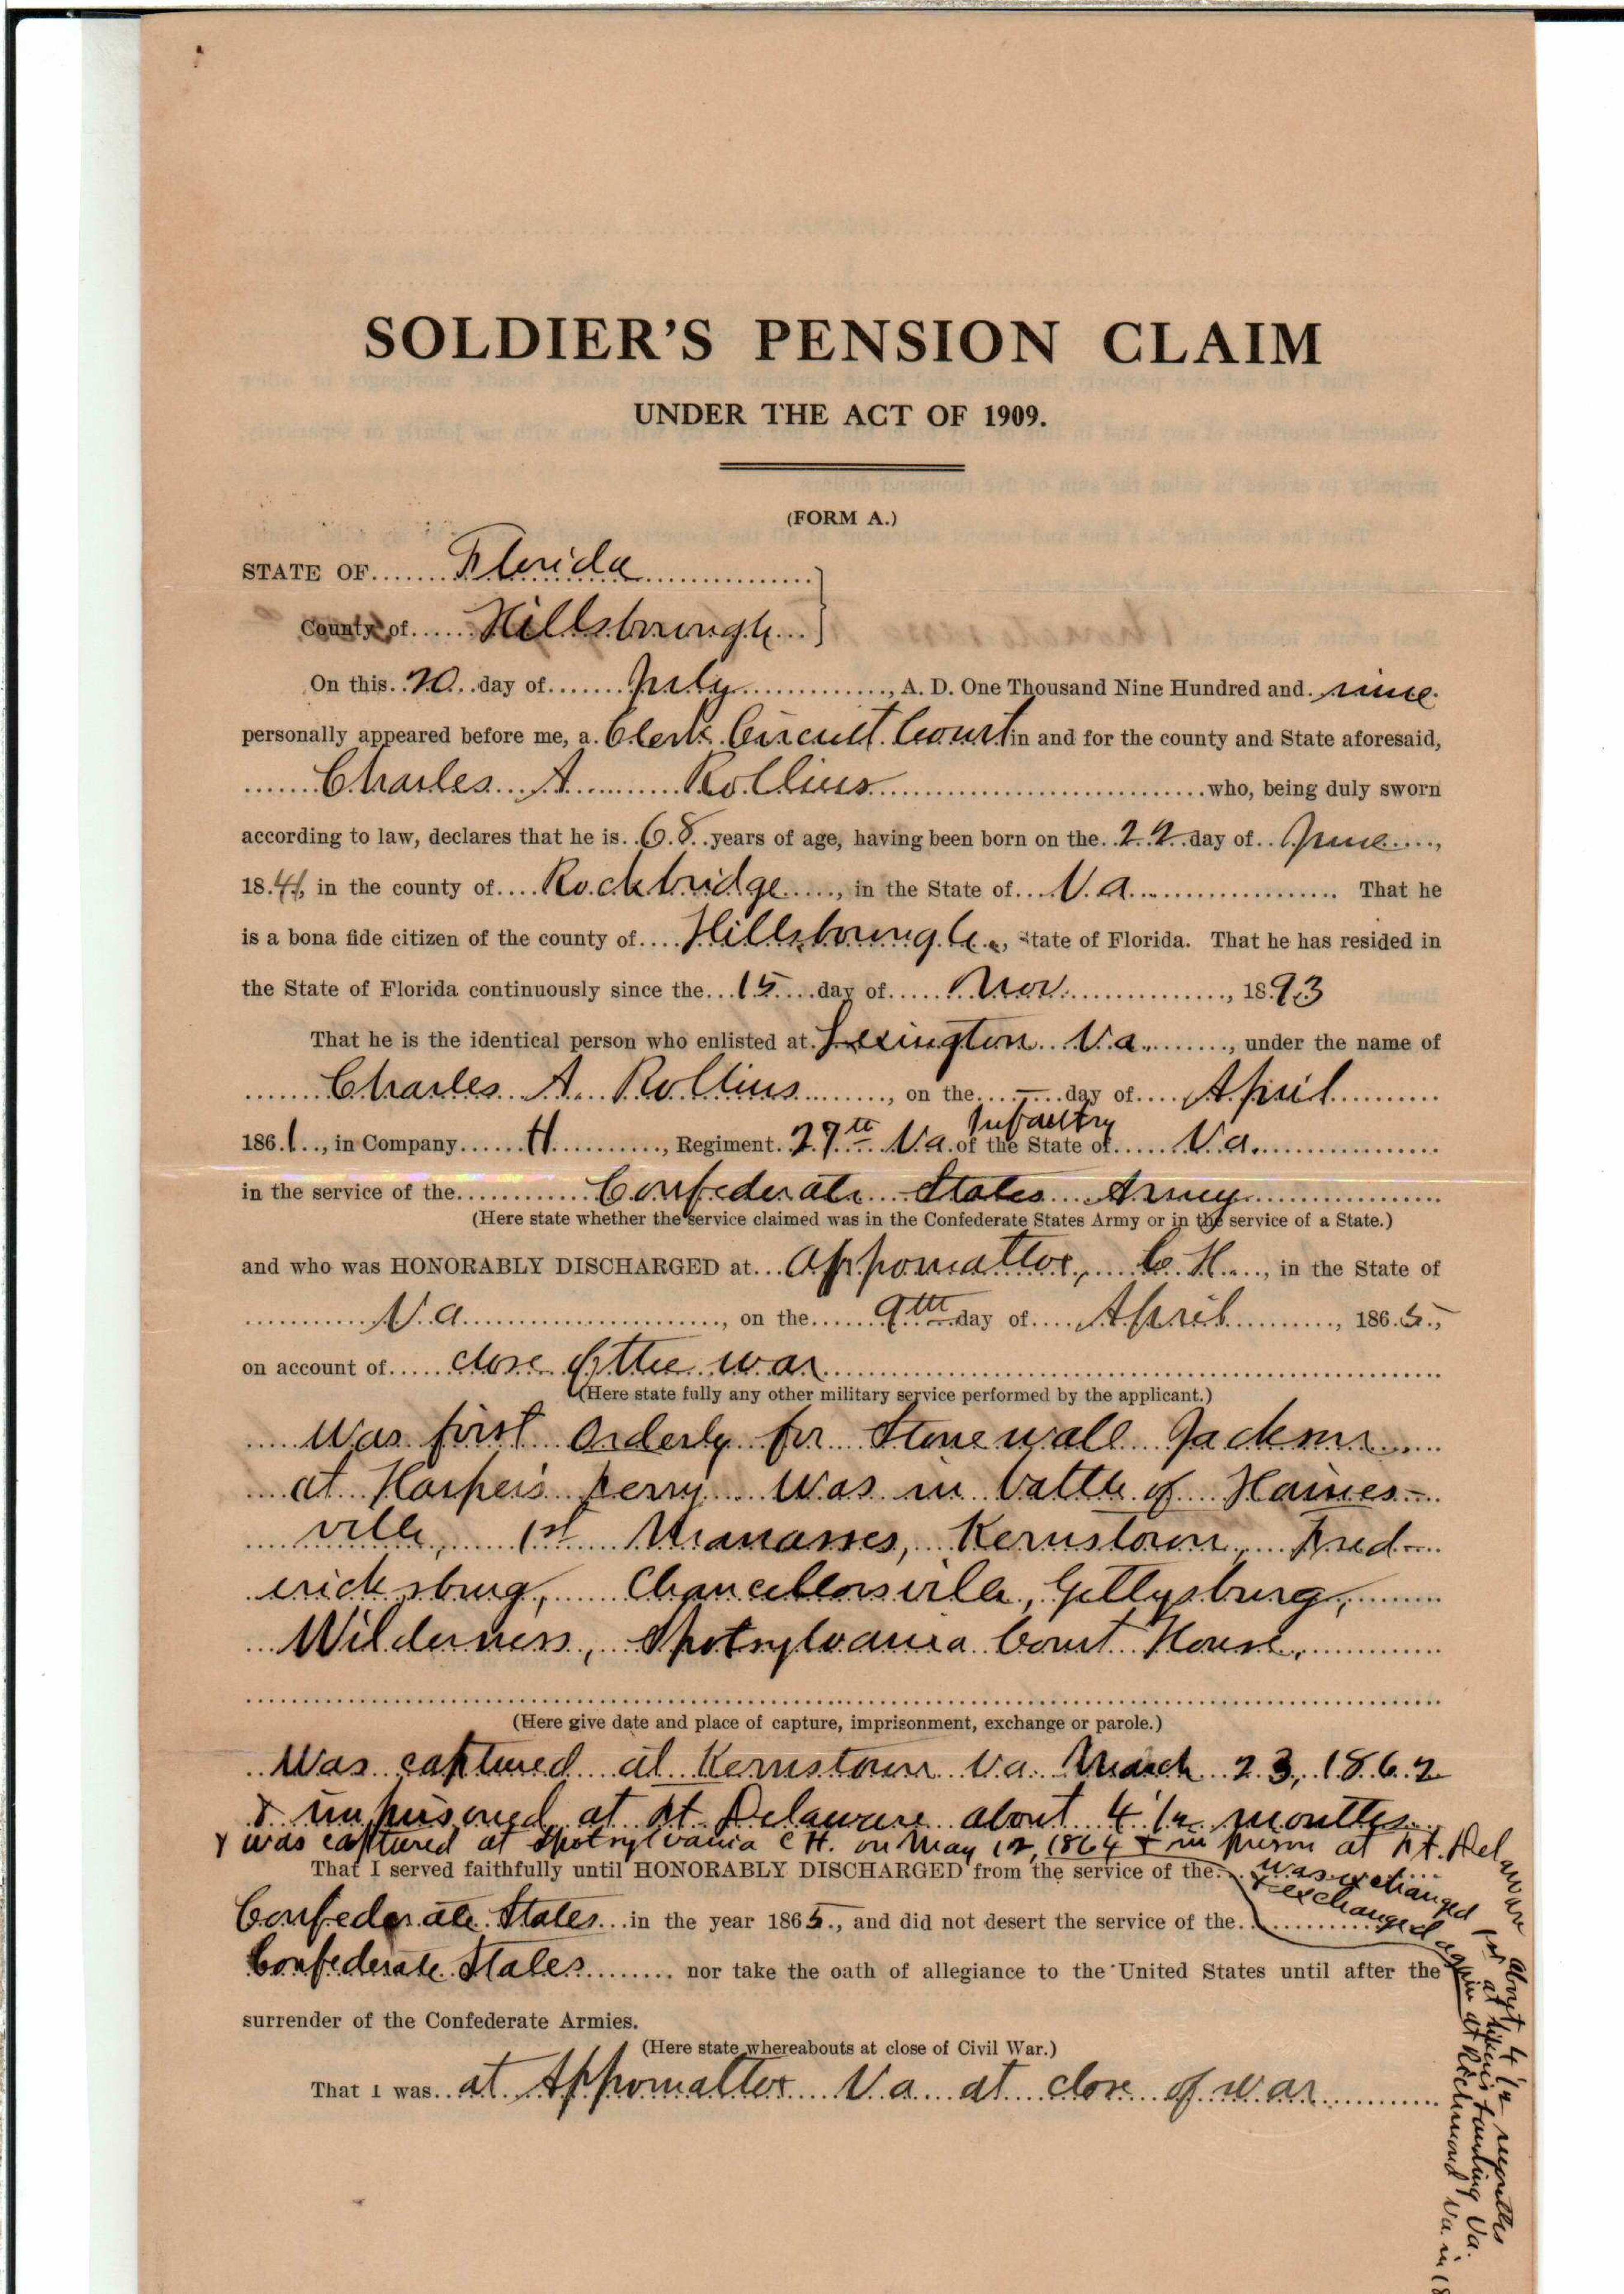 SOLDIER'S PENSION CLAIM
UNDER THE ACT OF 1909.
(FORM A.)
STATE OF Florida
County of Hillsborough
On this 20 day of July, A. D. One Thousand Nine Hundred and nine
personally appeared before me, a Clerk Circuit Court in and for the county and State aforesaid,
Charles A Rollins who, being duly sworn
according to law, declares that he is 68 years of age, having been born on the 22 day of June,
1841, in the county of Rockbridge, in the State of Va. That he
is a bona fide citizen of the county of Hillsborough, State of Florida. That he has resided in
the State of Florida continuously since the 15 day of Nov., 1893
That he is the identical person who enlisted at Lexington Va., under the name of
Charles A. Rollins, on the — day of April
1861, in Company H, Regiment 27th Va Infantry of the State of Va.
in the service of the Confederate States Army
(Here state whether the service claimed was in the Confederate States Army or in the service of a State.)
and who was HONORABLY DISCHARGED at Appomattox, C. H., in the State of
Va, on the 9th day of April, 1865,
on account of close of the war
(Here state fully any other military service performed by the applicant.)
Was first Orderly for Stonewall Jackson
at Harpers Ferry Was in battle of Haines-
ville, 1st Manasses, Kernstown, Fred-
ericksburg, Chancellorsville, Gettysburg,
Wilderness, Spotsylvania Court House,
(Here give date and place of capture, imprisonment, exchange or parole.)
Was captured at Kernstown Va March 23, 1862
& imprisoned at Ft Delaware about 4 1/2 months
& was captured at Spotsylvania C H. on May 12, 1864 & in prison at Ft. Delaware about 4 1/2 months
was exchanged 1st at Aikins landing Va.
& exchanged again at Richmond Va in
That I served faithfully until HONORABLY DISCHARGED from the service of the
Confederate States in the year 1865, and did not desert the service of the
Confederate States nor take the oath of allegiance to the United States until after the
surrender of the Confederate Armies.
(Here state whereabouts at close of Civil War.)
That I was at Appomattox Va at close of war